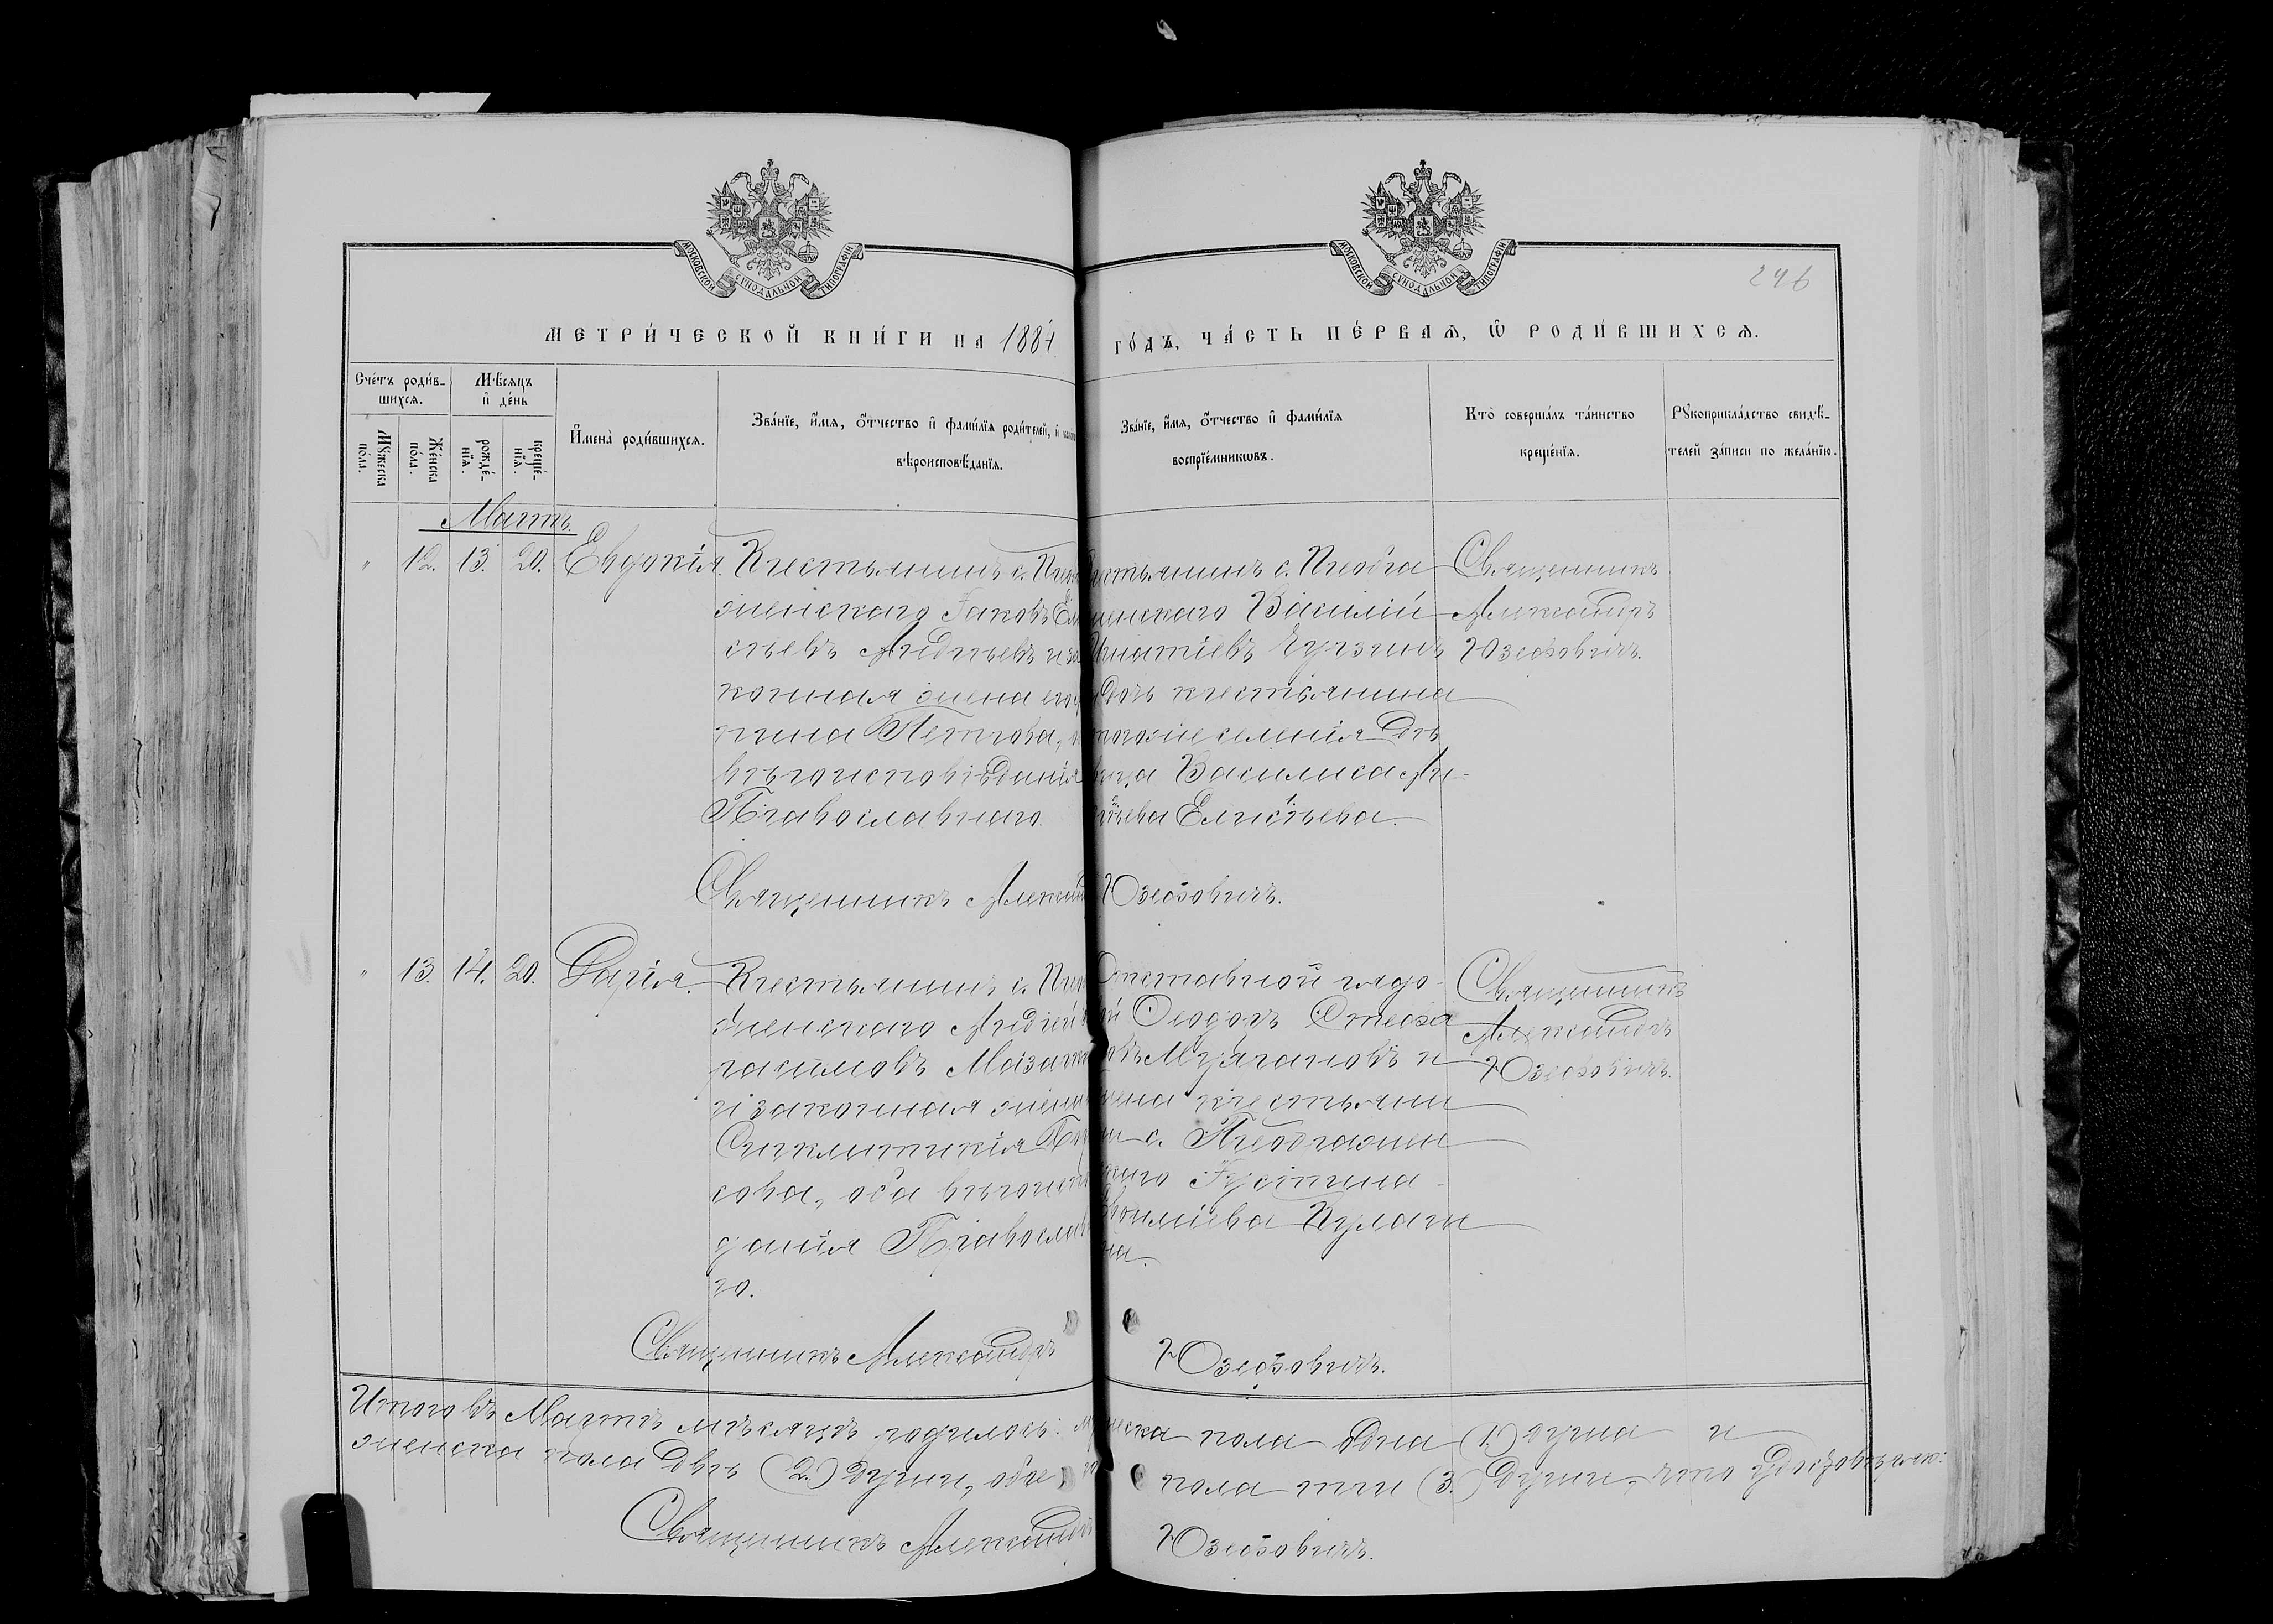 МОСКОВСКОЙ СѴНОДАЛЬНОЙ ТИПОГРАФІИ
МОСКОВСКОЙ СѴНОДАЛЬНОЙ ТИПОГРАФІИ
246
МЕТРИ́ЧЕСКОЙ КНИ́ГИ НА 1884
ГО́ДЪ, ЧА́СТЬ ПЕ́РВАѦ, Ѽ РОДИ́ВШИХСѦ.
Сче́тъ роди́в-
шихсѧ.
Мѣсѧцъ
и҆ де́нь
Мꙋжеска
по́ла.
Же́нска
по́ла.
рожде́-
нїѧ.
креще́-
нїѧ.
И҆мена̀ роди́вшихсѧ.
Зва́нїе, и҆́мѧ, ѻ҆́тчество и҆ фами́лїѧ роди́телей, и҆
вѣроисповѣ́данїѧ.
Зва́нїе, и҆́мѧ, ѻ҆́тчество и҆ фами́лїѧ
воспрїе́мникѡвъ.
Кто̀ соверша́лъ та́инство
креще́нїѧ.
Рꙋкоприкла́дство свидѣ́-
телей за́писи по жела́нїю.
Мартъ.
" 12. 13. 20. Евдокія.
Крестьянинъ с.
женскаго Іаковъ
сѣевъ Андреевъ и за
конная жена его
рина Петрова,
вѣроисповѣданія
Православнаго.
Крестьянинъ с. Преобра
женскаго Василій
Игнатіевъ и
дочь крестьянина
тогоже селенія дѣ
вица Василиса Ан
дреева Елисѣева.
Священникъ
Александръ
Юзефовичъ.
Священникъ Александръ Юзефовичъ.
" 13. 14. 20. Дарія.
Крестьянинъ с.
женскаго Андрей
расимовъ
и законная жена
Синклитикія Бори
сова, оба вѣроиспо
данія Православ
го.
Отставной рядо
вой Ѳеодоръ Стефа
новъ и
жена крестьяни
на с. Преображен
скаго Іустина
Кулаги
на.
Священникъ
Александръ
Юзефовичъ.
Священникъ Александръ Юзефовичъ.
Итого въ Мартѣ мѣсяцѣ родилось: мужеска пола одна (1.) душа и
женска пола двѣ (2.) души, обоего пола три (3.) души, что удостовѣряю:
Священникъ Александръ Юзефовичъ.